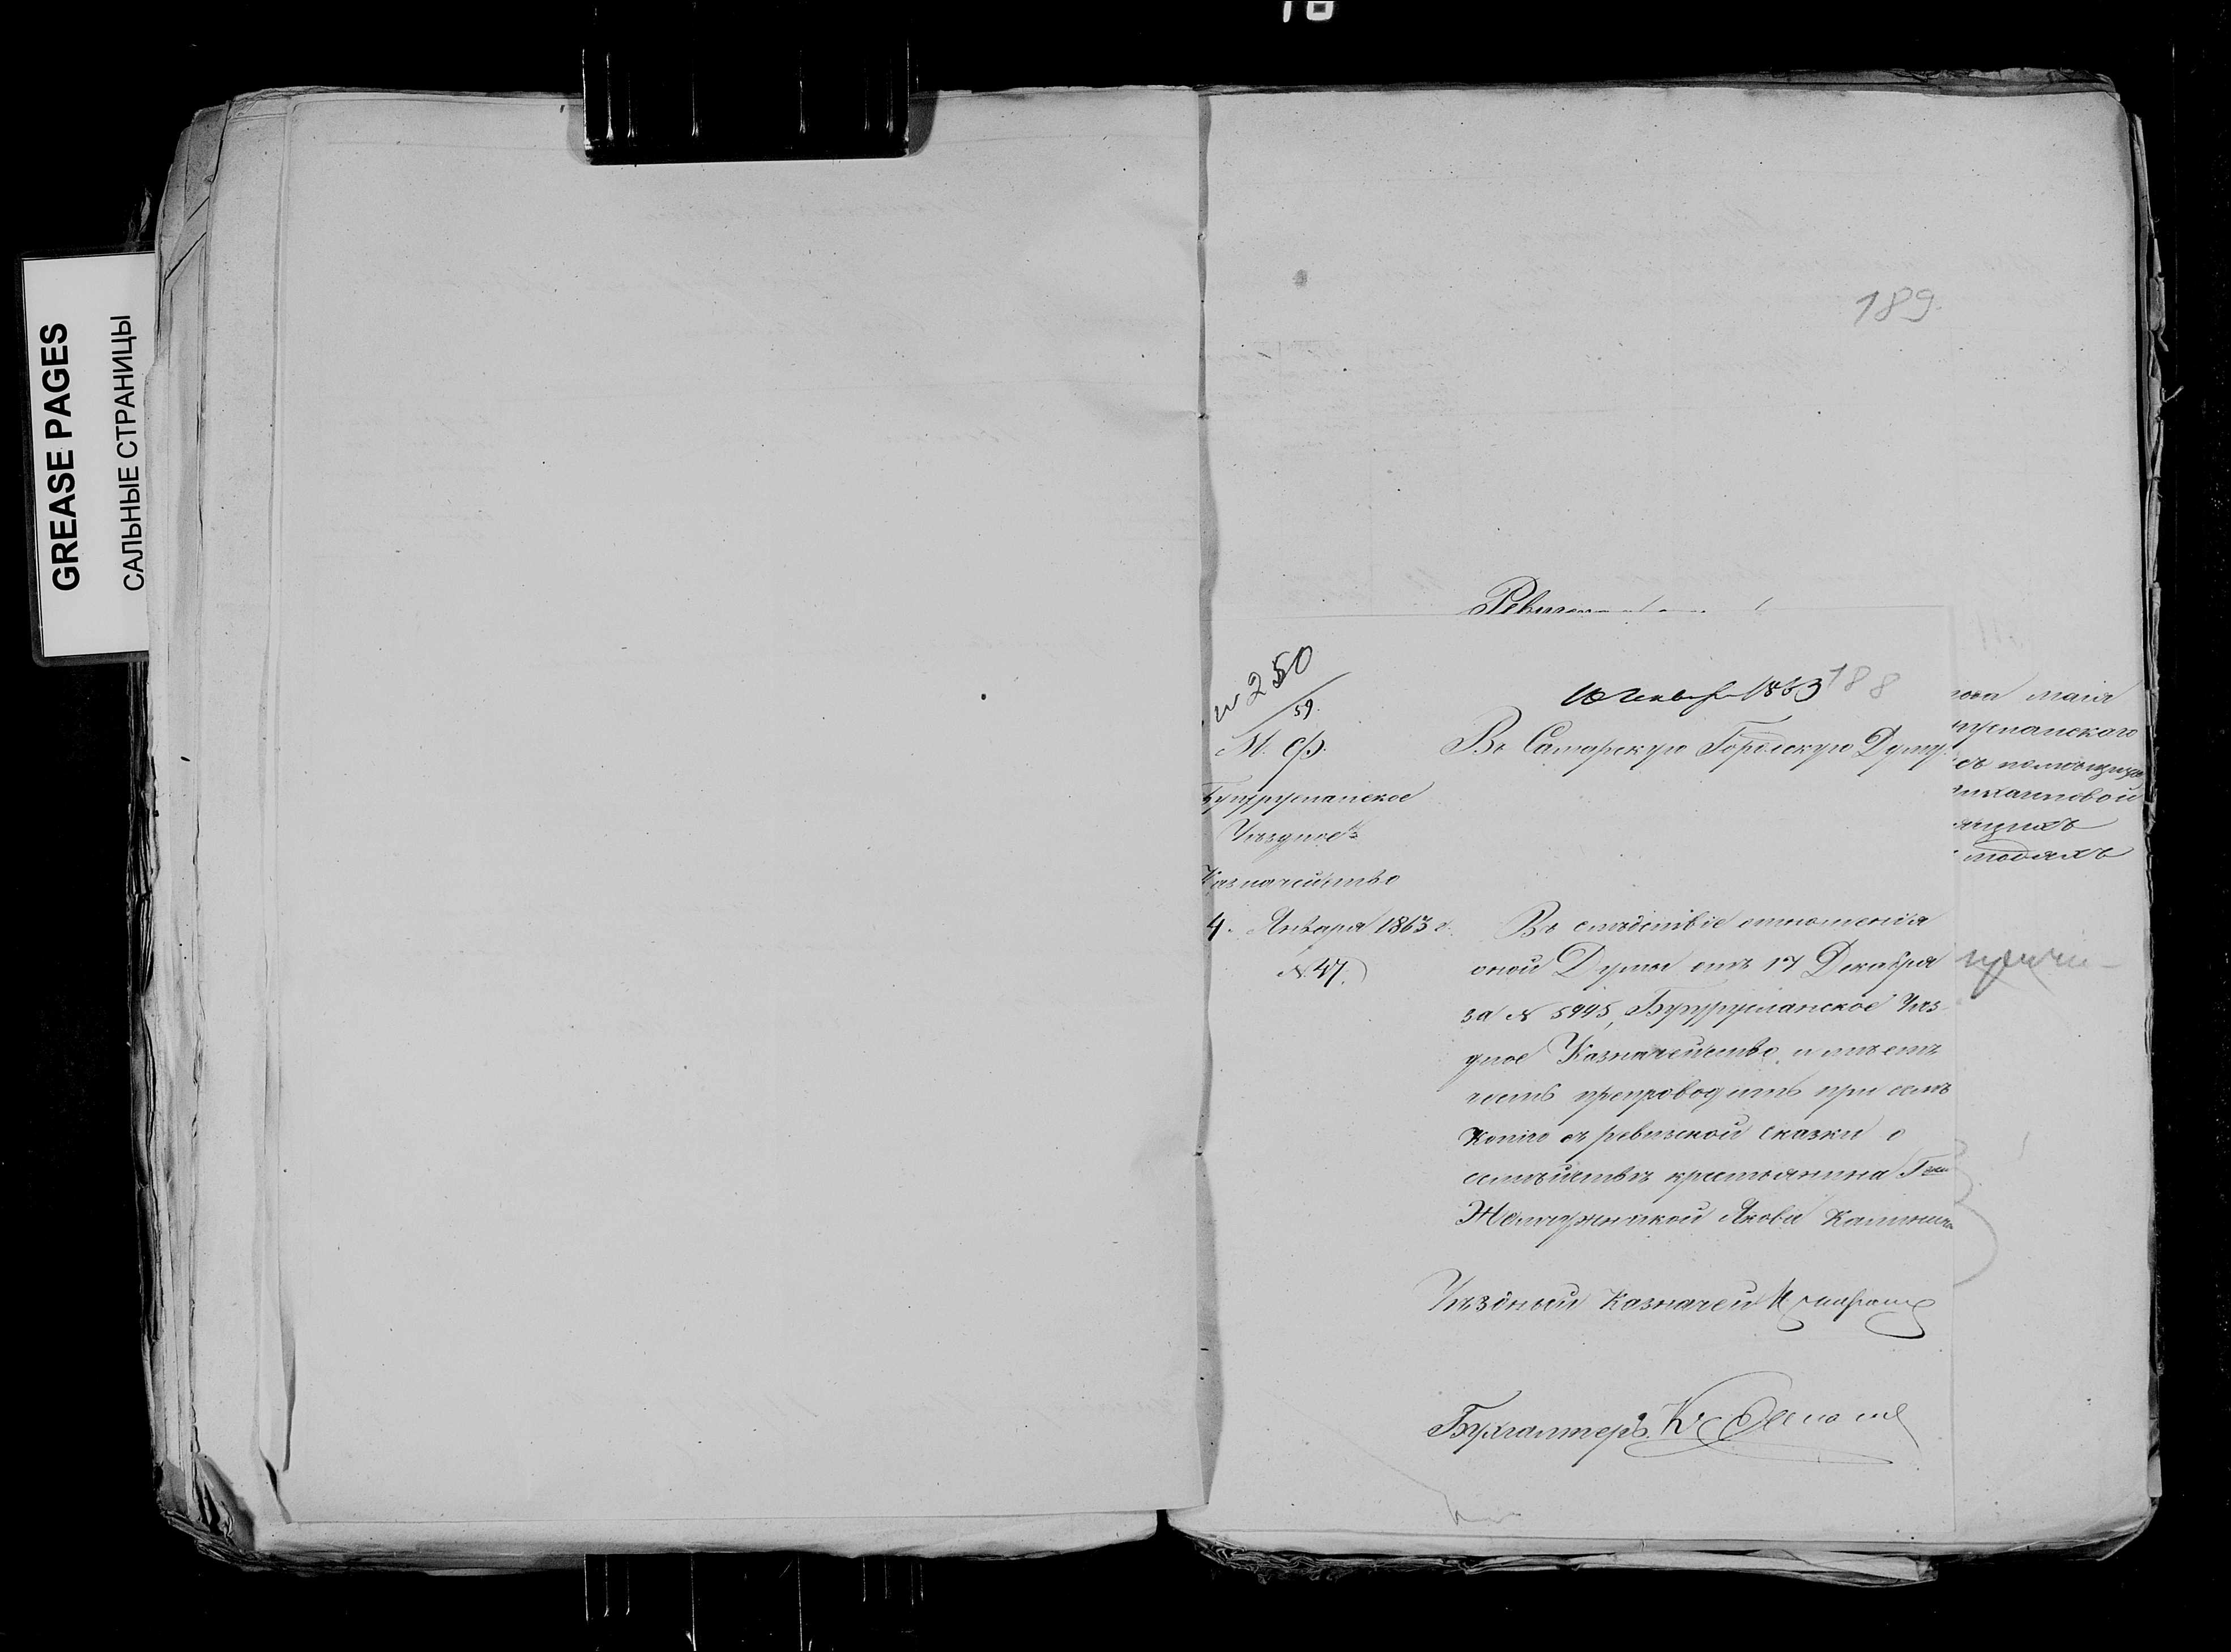 GREASE PAGES
САЛЬНЫЕ СТРАНИЦЫ
189.
188
№ 250
59.
М. Ф.
Бугурусланское
Уѣздное
Казначейство
4. Января 1863 г.
№ 47.
Въ Самарскую Городскую Думу.
Въ слѣдствіе отношенія
оной Думы отъ 17 Декабря
за № 5995, Бугурусланское Уѣз-
дное Казначейство имѣетъ
честь препроводить при семъ
копію съ ревизской сказки о
семѣйствѣ крестьянина Г-жи
Якова
Уѣздный Казначей
Бухгалтеръ
мая
гурусланскаго